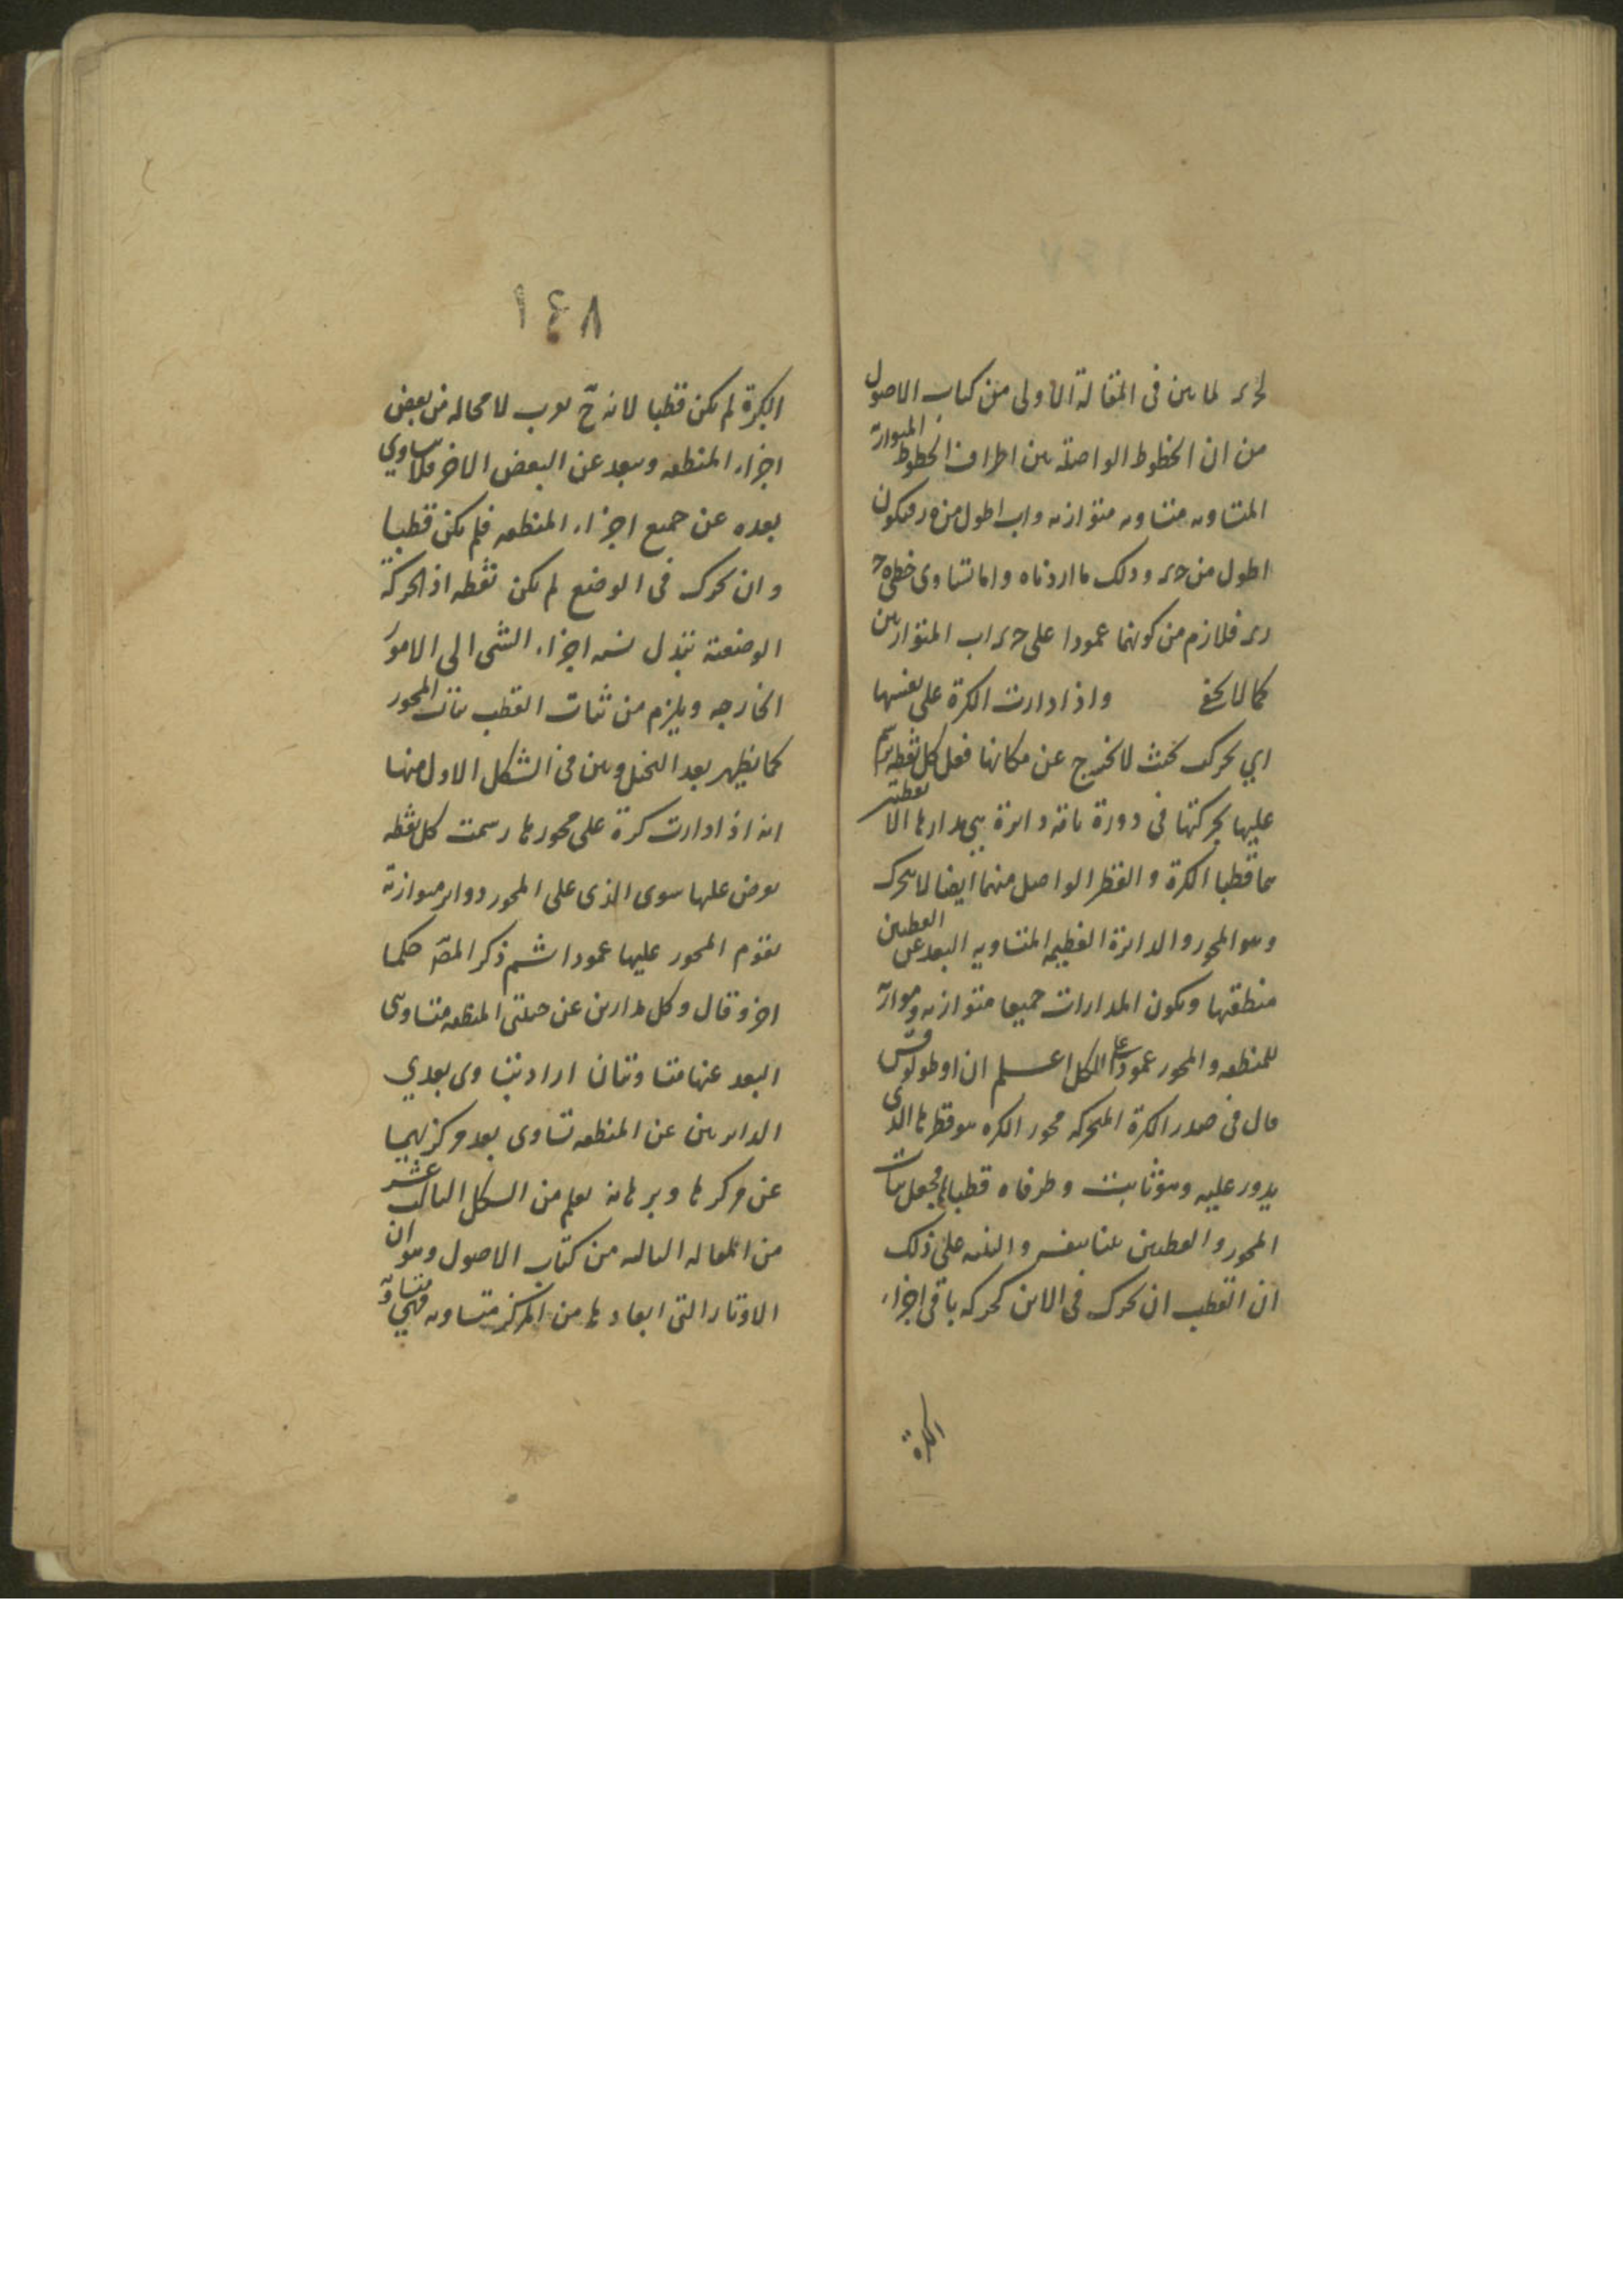 لحرر لما بين في المقالة الاولى من كتاب الاصول
من ان الخطوط الواصلة بين اطراف الخطوط المتوازية
المتساويه متساويه متوازيه واب اطول من ه ر فيكون
اطول من ح ر وذلك ما اردناه واما تساوى خطى ه ح
رر فلازم من كونهما عمودا على ح ر اب المتوازيين
كما لا يخفى واذا دارت الكرة على نفسها
اي تحرك بحيث لا تخرج عن مكانها فعل كل نقطه ترسم
عليها بحركتها فى دورة تامة دائرة هي مدارها الا نقطتين
هما قطبا الكرة والقطر الواصل منهما ايضا لا يتحرك
وهو المحور والدائرة العظيمه المتساويه البعد عن القطبين
منطقتها ويكون المدارات جميعا متوازيه وموازية
للمنطقه والمحور عمود على الكل اعلم ان اوطولوقس
قال فى صدر الكرة المتحركه محور الكره هو قطرها الذى
يدور عليه وهو ثابت وطرفاه قطباها فجعل ثبات
المحور والقطبين والبته على ذلك
ان القطب ان تحرك فى الاين كحركه باقى اجزاء
الكرة
١٤٨
الكرة لم يكن قطبا لانه ح يقرب لا محاله من بعض
اجزاء المنطقه ويبعد عن البعض الاخر فلا يساوي
بعده عن جميع اجزاء المنطقه فلم يكن قطبا
وان تحرك فى الوضع لم يكن نقطه اذ الحركة
الوضعية تبدل نسبه اجزاء الشئ الى الامور
الخارجه ويلزم من ثبات القطب ثبات المحور
كما يظهر بعد التخيل وبين فى الشكل الاول منها
انه اذا دارت كرة على محورها رسمت كل نقطه
تفرض عليها سوى الذى على المحور دوائر متوازية
يقوم المحور عليها عمودا ثم ذكر المصَ حكما
اخر وقال وكل مدارين عن جنبتى المنطقه متساوى
البعد عنها متساويتان اراد بتساوى بعدي
الدائرتين عن المنطقه تساوى بعد مركزيهما
عن مركزها وبرهانه يعلم من الشكل الثالث عشر
من المقاله الثالثه من كتاب الاصول وهو ان
الاوتار التى ابعادها من المركز متساويه فهي متساوية